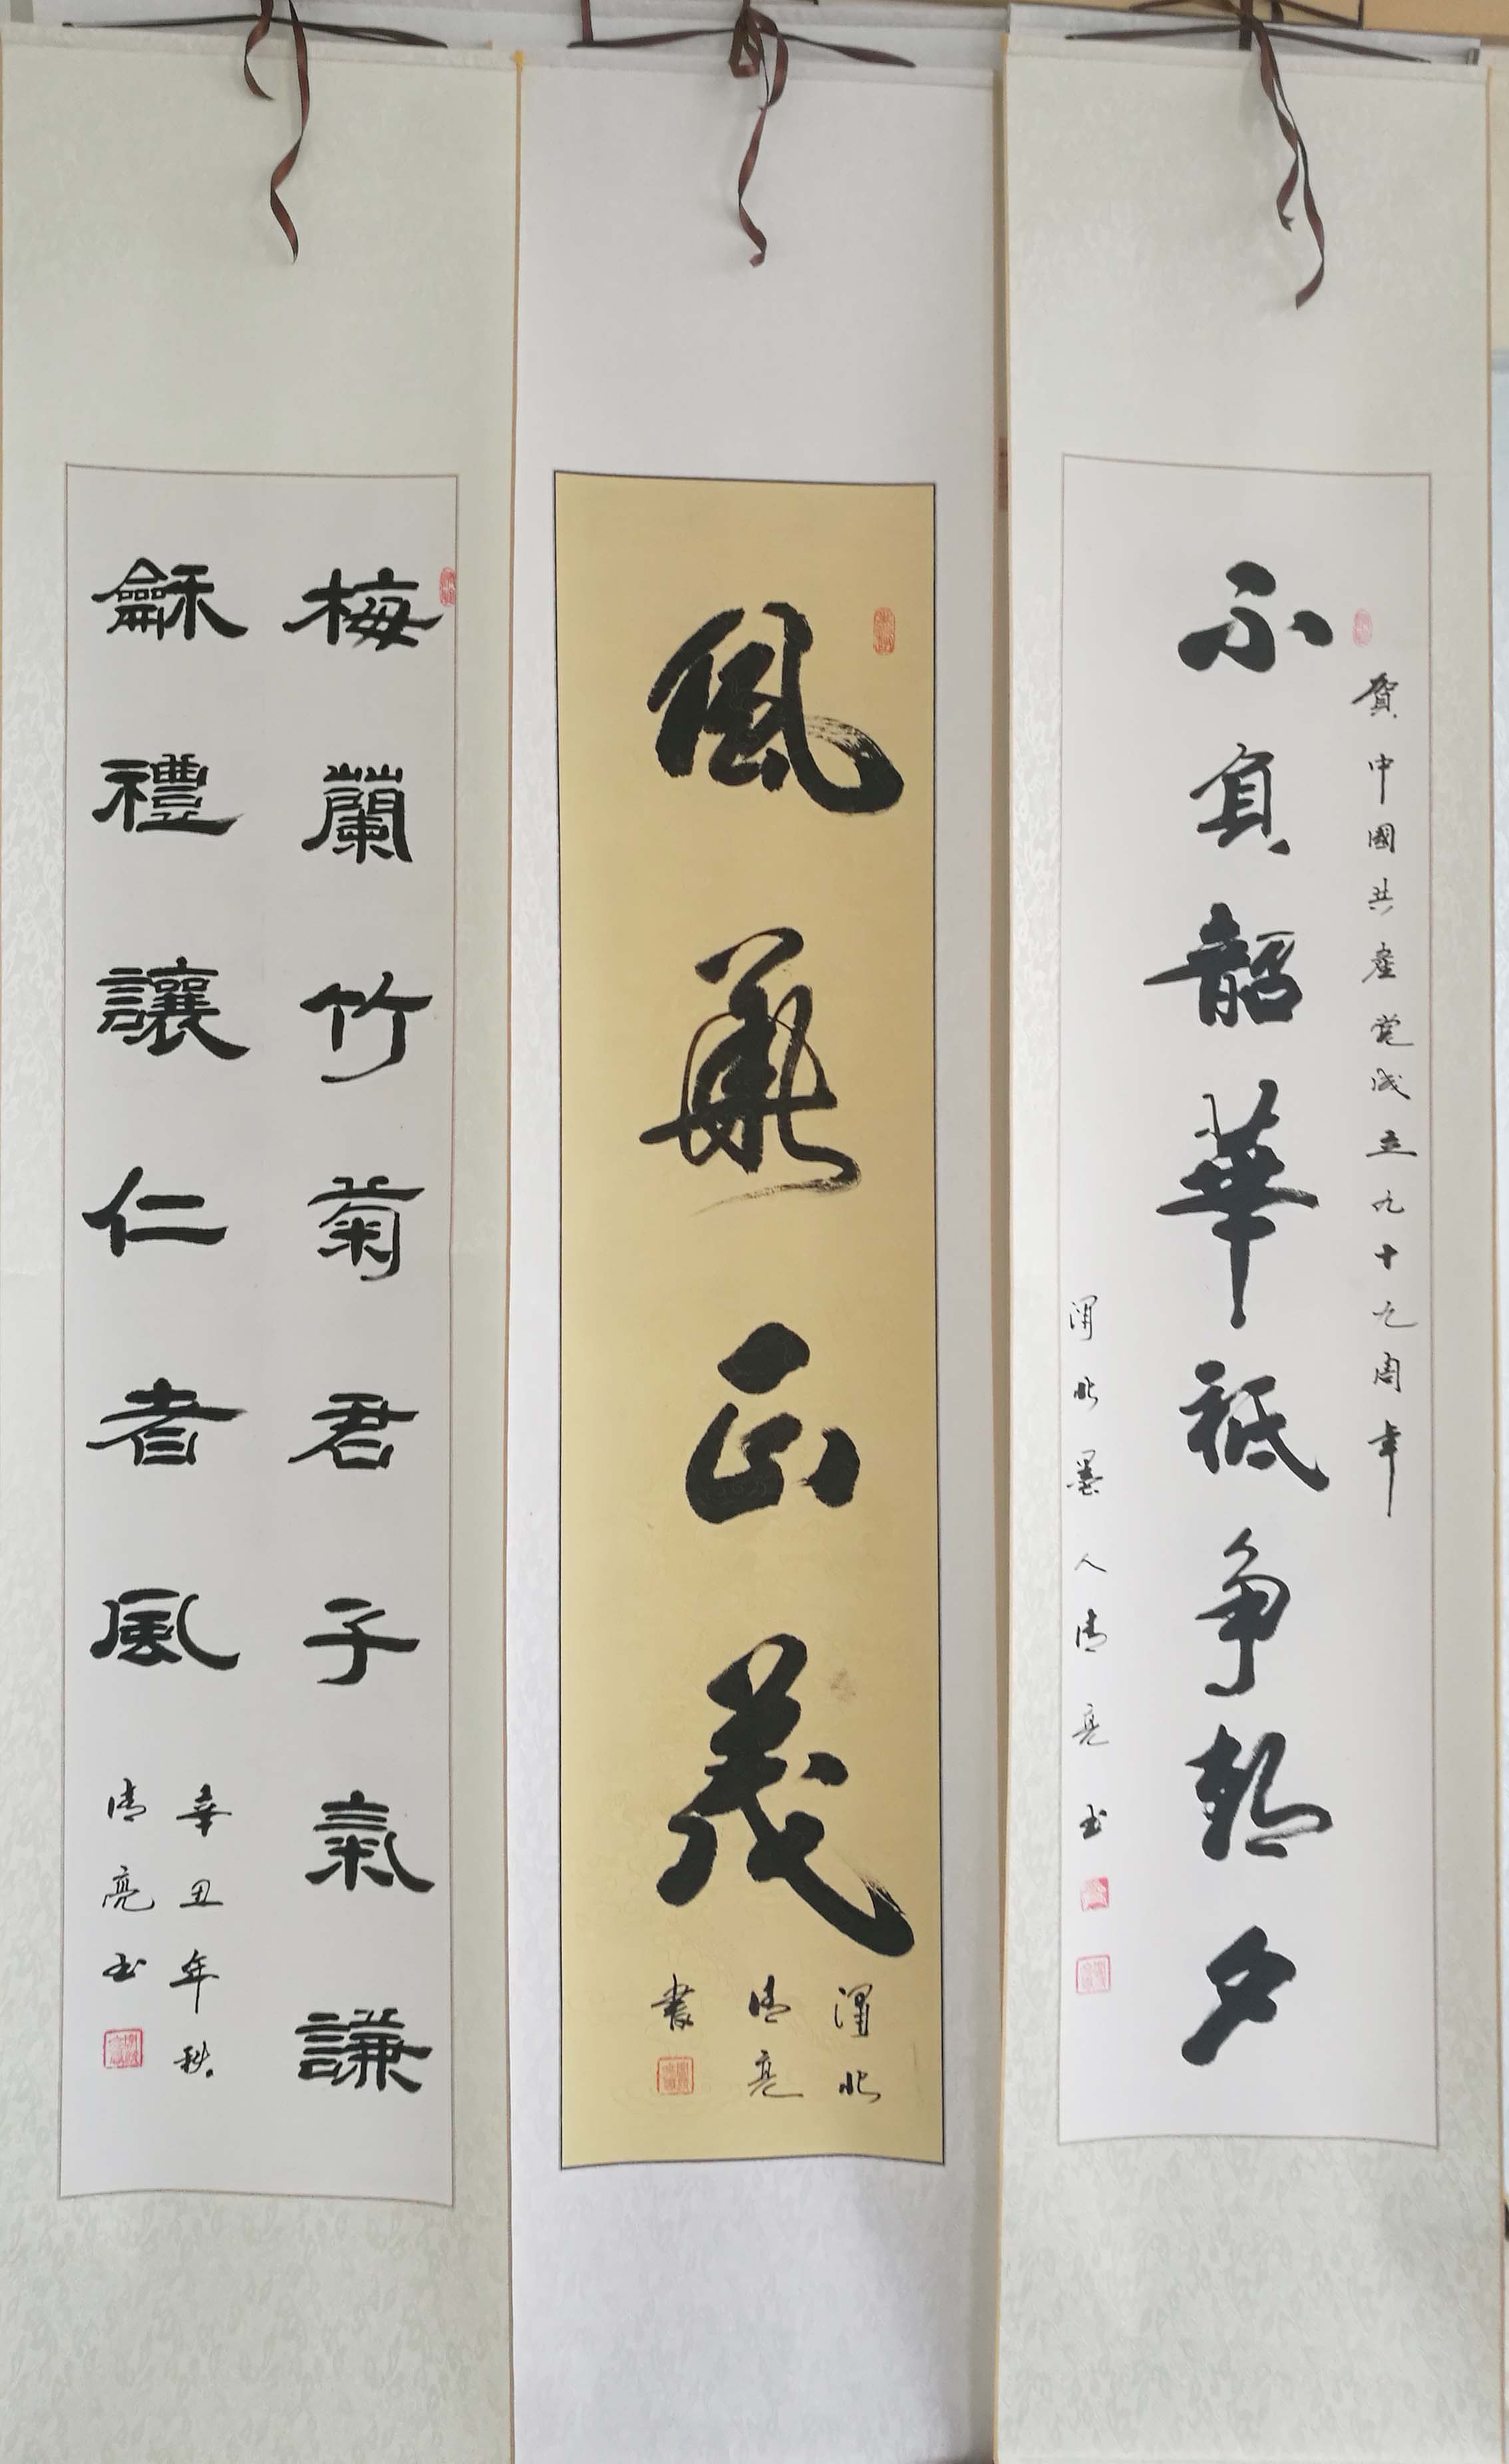 賀中國共産党成立九十九周年
不負韶華祗争朝夕
渭北墨人清亮书
風華正茂
渭北
清亮
書
梅蘭竹菊君子氣謙
龢禮讓仁者風
辛丑年秋
清亮书